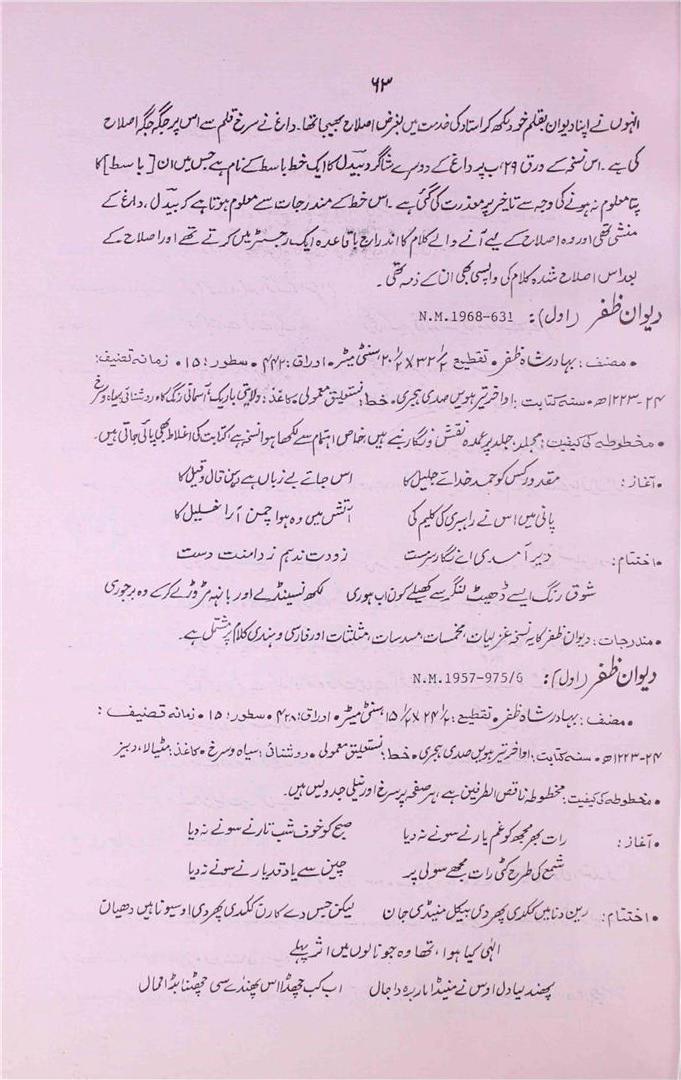 ۶۳
انہوں نے اپنا دیوان بقلم خود لکھ کر استاد کی خدمت میں بغرض اصلاح بھیجا تھا۔ داغ نے سرخ قلم سے اس پر جگہ جگہ اصلاح
کی ہے۔ اس نسخہ کے ورق ۲۹، ب پر داغ کے دوسرے شاگرد بیدل کا ایک خط باسط کے نام ہے جس میں ان [باسط] کا
پتا معلوم نہ ہونے کی وجہ سے تاخیر پر معذرت کی گئی ہے۔ اس خط کے مندرجات سے معلوم ہوتا ہے کہ بیدل، داغ کے
منشی تھی اور وہ اصلاح کے لیے آنے والے کلام کا اندراج باقاعدہ ایک رجسٹر میں کرتے تھے اور اصلاح کے
بعد اس اصلاح شدہ کلام کی واپسی بھی ان کے ذمہ تھی۔
دیوان ظفر (اول): N.M.1968-631
• مصنف: بہادر شاہ ظفر • تقطیع: ۳۲ ۱/۲ X ۲۰ ۱/۲ سنٹی میٹر • اوراق: ۴۴۲ • سطور: ۱۵ • زمانہ تصنیف:
۲۴-۱۲۲۳ھ • سنہ کتابت: اواخر تیرہویں صدی ہجری • خط: نستعلیق معمولی • کاغذ: ولایتی باریک، آسمانی رنگ کا • روشنائی سیاہ و سرخ
• مخطوطہ کی کیفیت: مجلد، جلد پر عمدہ نقش و نگار بنے ہیں، خاص اہتمام سے لکھا ہوا نسخہ ہے کتابت کی اغلاط بھی پائی جاتی ہیں۔
• آغاز: مقدور کس کو حمد خدائے جلیل کا اس جائے بے زباں ہے دہن قال و قیل کا
پانی میں اس نے راہبری کی کلیم کی آتش میں وہ ہوا چمن آرا خلیل کا
• اختتام: دیر آمدی اے نگار سرمست زودت ندہم ز دامنت دست
شوق رنگ ایسے ڈھیٹ لنگر سے کھیلے کون اب ہوری مکھ بینڈے اور بانہہ مڑوڑے کرے وہ برجوری
• مندرجات: دیوان ظفر کا یہ نسخہ غزلیات، مخمسات، مسدسات، مثلثات اور فارسی و ہندی کلام پر مشتمل ہے۔
دیوان ظفر (اول): N.M.1957-975/6
• مصنف: بہادر شاہ ظفر • تقطیع: ۲۴ ۱/۲ X ۱۵ ۱/۲ سنٹی میٹر • اوراق: ۴۲۸ • سطور: ۱۵ • زمانہ تصنیف:
۲۴-۱۲۲۳ھ • سنہ کتابت: اواخر تیرہویں صدی ہجری • خط: نستعلیق معمولی • روشنائی: سیاہ و سرخ • کاغذ: مٹیالا، دبیز
• مخطوطہ کی کیفیت: مخطوطہ ناقص الطرفین ہے، ہر صفحہ پر سرخ اور نیلی جدولیں ہیں۔
• آغاز: رات بھر مجھ کو غم یار نے سونے نہ دیا صبح کو خوف شب تار نے سونے نہ دیا
شمع کی طرح کٹی رات مجھے سولی پر چین سے یاد قد یار نے سونے نہ دیا
• اختتام: رین دنا میں لگدی پھردی بیکل مینڈی جان لیکن جیس دے کارن لگدی پھردی اوسیو ناہیں دھیان
الٰہی کیا ہوا، تھا وہ جو نالوں میں اثر پہلے
پھند لیا دل اوس نے مینڈا مار برہ دا جال اب کب چھڈا اس پھندے سی چھٹنا بڈا امحال